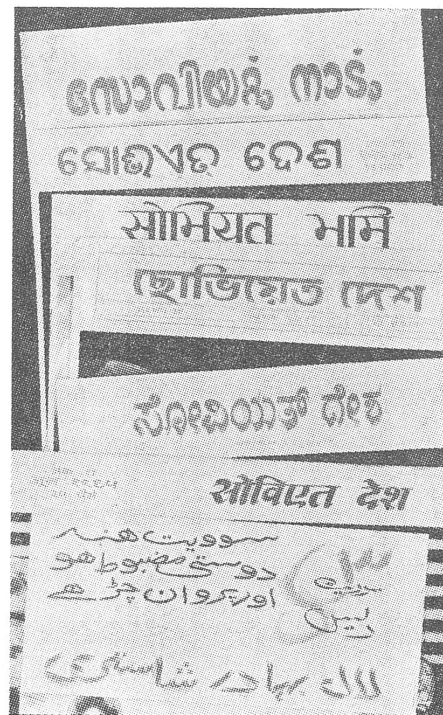 സോവിയറ്റ് നാട്
ସୋଭିଏତ ଦେଶ
सोभियत भूमि
ছোভিয়েত দেশ
ಸೋವಿಯತ್ ದೇಶ
सोविएत देश
سوویت هند
دوستی مضبوط هو
اور پروان چڑھے
سوویت
دیس
لال بہادر شاستری